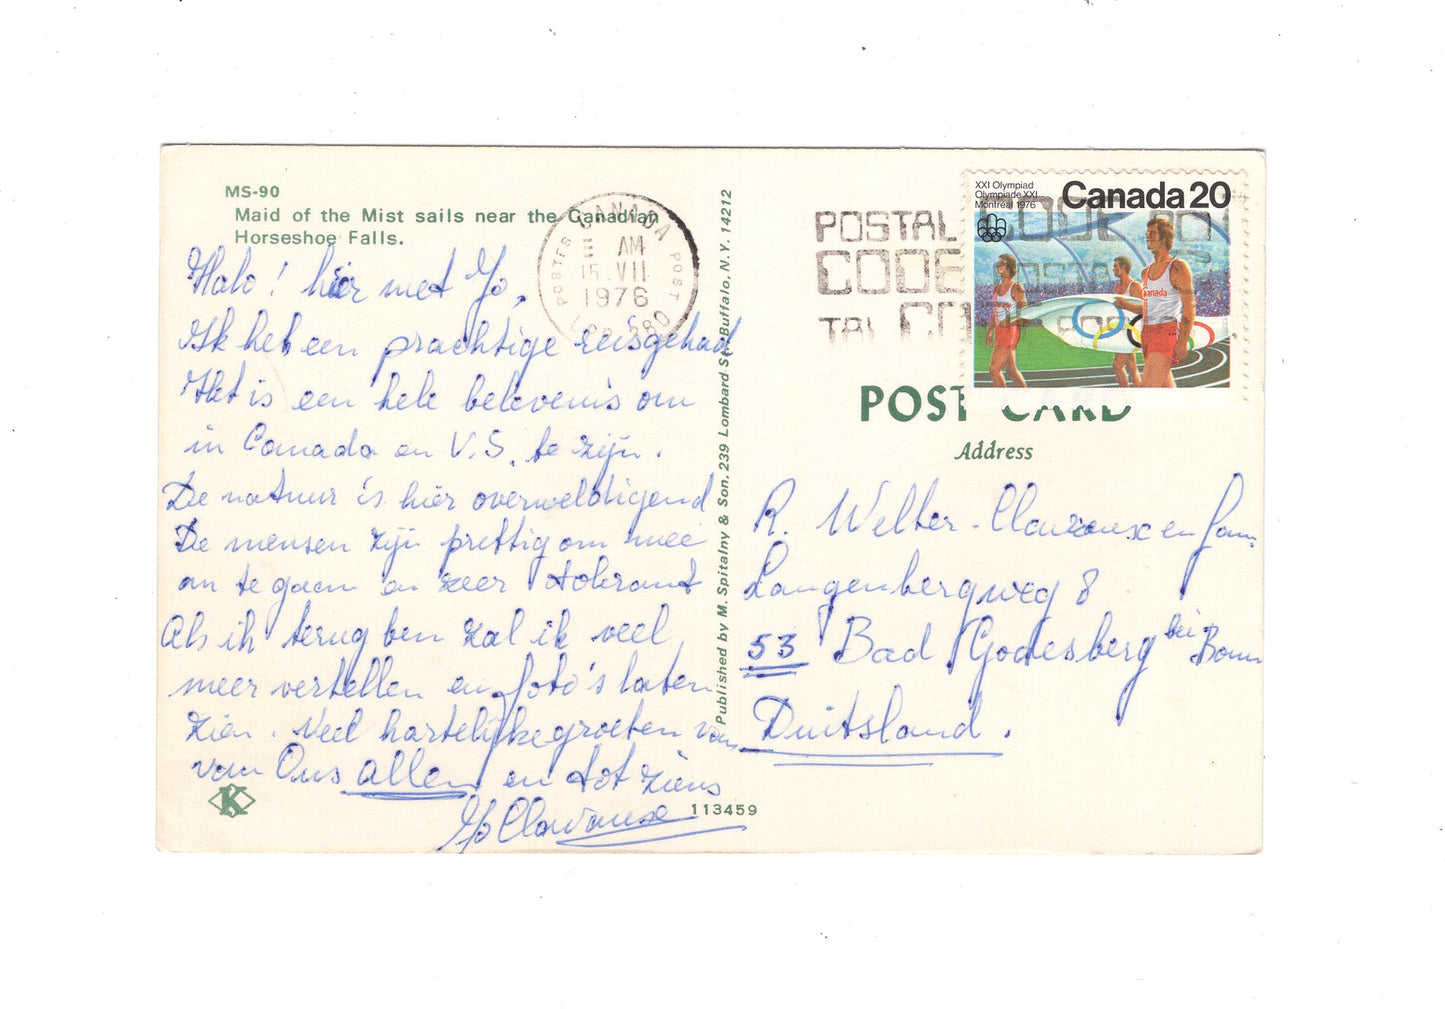 MS-90
Maid of the Mist sails near the Canadian
Horseshoe Falls.
Halo! hier met Jo,
Ik heb een prachtige reis gehad
Het is een hele belevenis om
in Canada en V.S. te zijn.
De natuur is hier overweldigend
De mensen zijn prettig om mee
om te gaan en zeer tolerant
Als ik terug ben zal ik veel
meer vertellen en foto's laten
zien. Veel hartelijke groeten van
van Ons allen en tot ziens
Jo
113459
Published by M. Spitalny & Son, 239 Lombard St. Buffalo, N.Y. 14212
CANADA
POSTES POST
AM
15 VII
1976
POSTAL CODE
CODE POSTAL
TAL CO
XXI Olympiad
Olympiade XXI
Montréal 1976
Canada 20
Canada
POST CARD
Address
R. Welter- en fam.
Langenbergweg 8
53 Bad Godesberg bei Bonn
Duitsland.